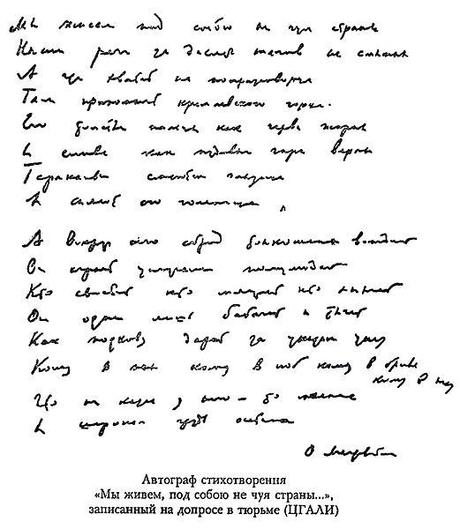 Мы живем под собою не чуя страны
Наши речи за десять шагов не слышны
А где хватит на полразговорца
Там припомнят кремлевского горца.
Его толстые пальцы как черви жирны
И слова как пудовые гири верны
Тараканьи смеются глазища
И сияют его голенища
А вокруг его сброд тонкошеих вождей
Он играет услугами полулюдей
Кто свистит кто мяучит кто хнычет
Он один лишь бабачит и тычет
Как подкову дарит за указом указ
Кому в пах кому в лоб кому в бровь
кому в глаз
Что ни казнь у него — то малина
И широкая грудь осетина
О Мандельштам
Автограф стихотворения
«Мы живем, под собою не чуя страны...»,
записанный на допросе в тюрьме (ЦГАЛИ)